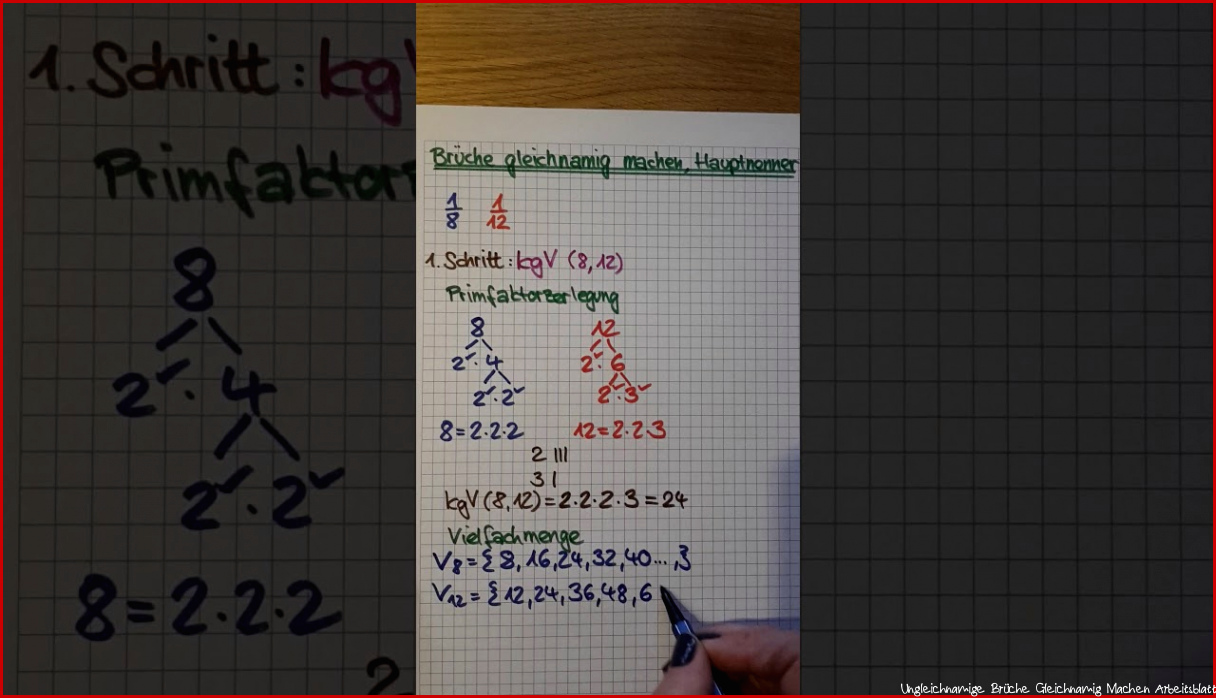 Brüche gleichnamig machen, Hauptnenner
1/8 1/12
1. Schritt: kgV (8,12)
Primfaktorzerlegung
8 12
2 · 4 2 · 6
2 · 2 2 · 3
8 = 2·2·2 12 = 2·2·3
2 III
3 I
kgV (8,12) = 2·2·2·3 = 24
Vielfachmenge
V8 = {8, 16, 24, 32, 40 ... ,}
V12 = {12, 24, 36, 48, 6
1. Schritt: kgV
Primfaktorz
8
2 · 4
2 · 2
8 = 2·2·2
2
Ungleichnamige Brüche Gleichnamig Machen Arbeitsblatt